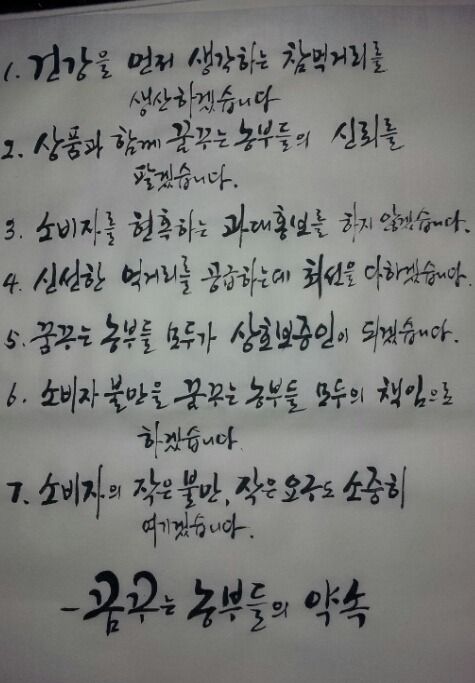 1. 건강을 먼저 생각하는 참먹거리를
생산하겠습니다
2. 상품과 함께 꿈꾸는 농부들의 신뢰를
팔겠습니다.
3. 소비자를 현혹하는 과대홍보를 하지 않겠습니다.
4. 신선한 먹거리를 공급하는데 최선을 다하겠습니다.
5. 꿈꾸는 농부들 모두가 상호보증인이 되겠습니다.
6. 소비자 불만을 꿈꾸는 농부들 모두의 책임으로
하겠습니다.
7. 소비자의 작은 불만, 작은 요구도 소중히
여기겠습니다.
- 꿈꾸는 농부들의 약속